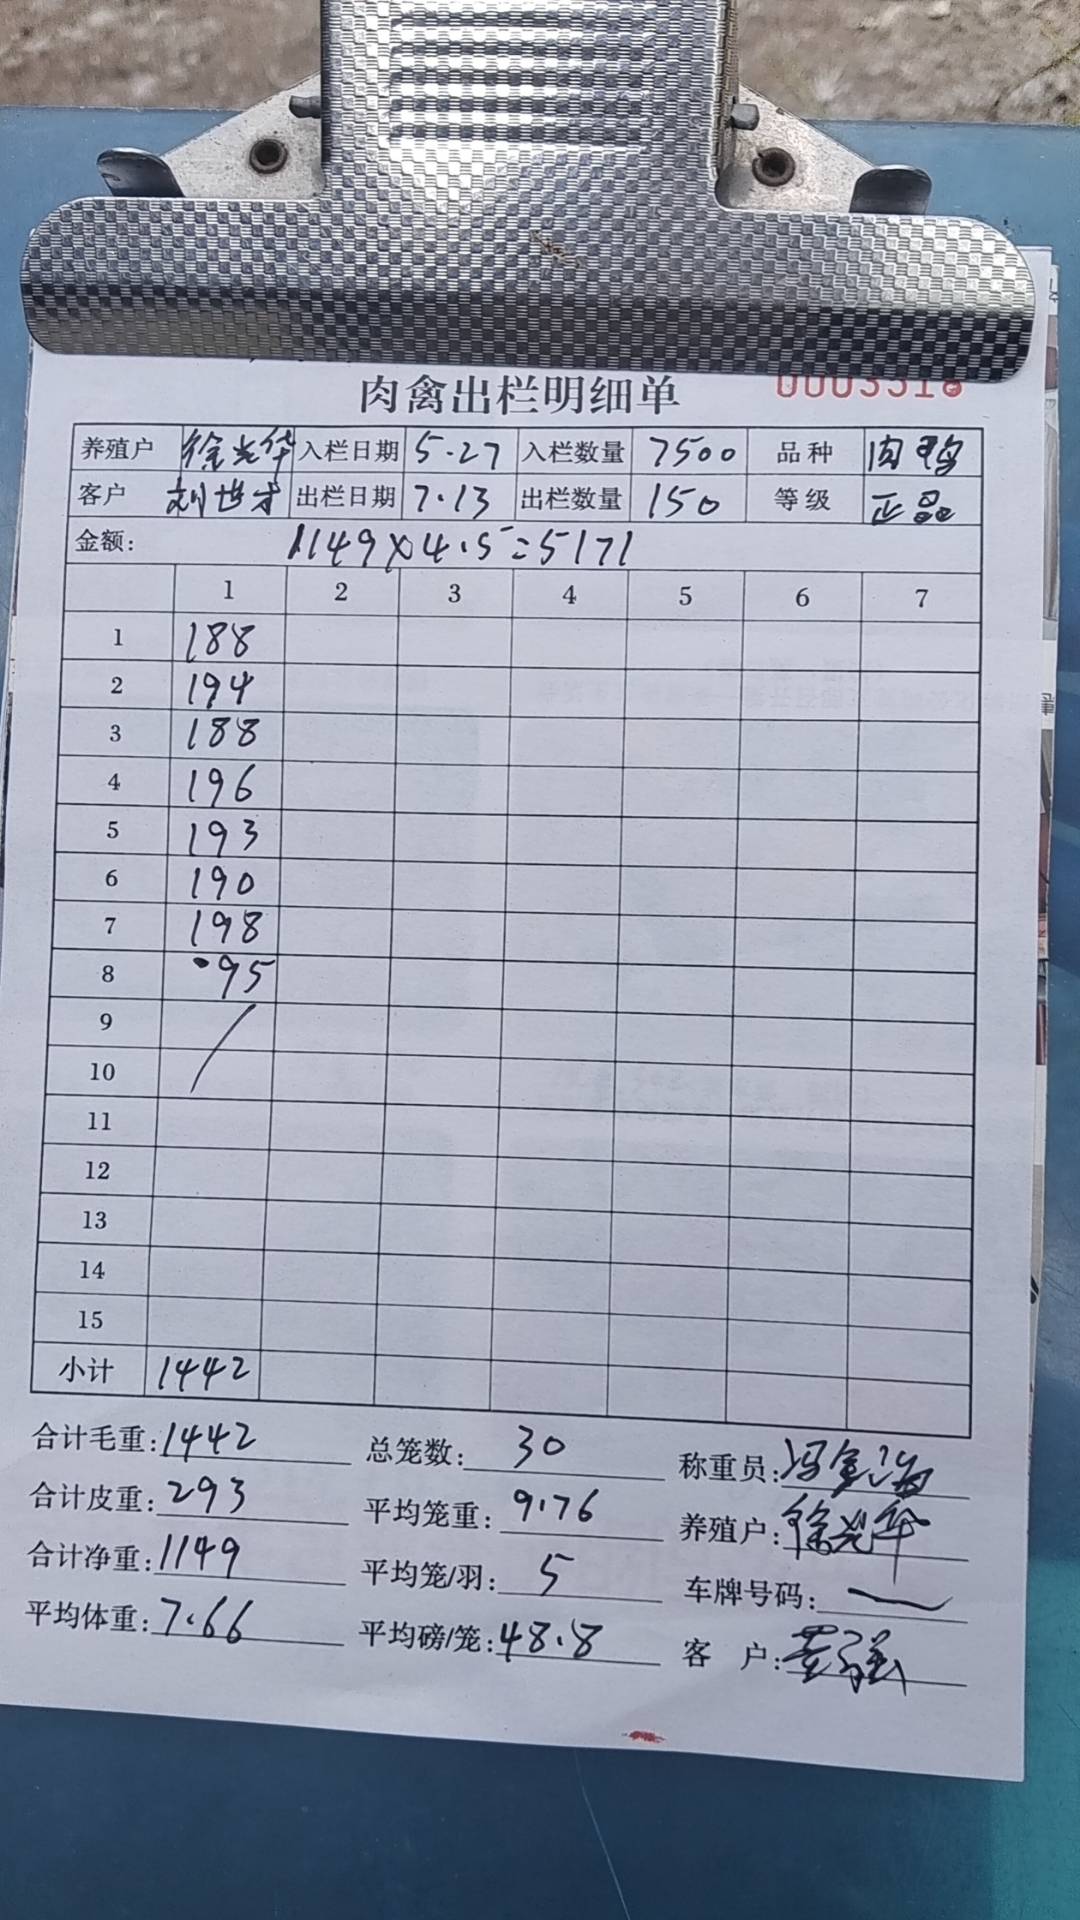 肉禽出栏明细单 0003518
养殖户 徐光华 入栏日期 5.27 入栏数量 7500 品种 肉鸭
客户 刘世才 出栏日期 7.13 出栏数量 150 等级 正品
金额: 1149×4.5=5171
1 2 3 4 5 6 7
1 188
2 194
3 188
4 196
5 193
6 190
7 198
8 95
9
10
11
12
13
14
15
小计 1442
合计毛重:1442 总笼数:30 称重员:冯金海
合计皮重:293 平均笼重:9.76 养殖户:徐光华
合计净重:1149 平均笼/羽:5 车牌号码:
平均体重:7.66 平均磅/笼:48.8 客 户: